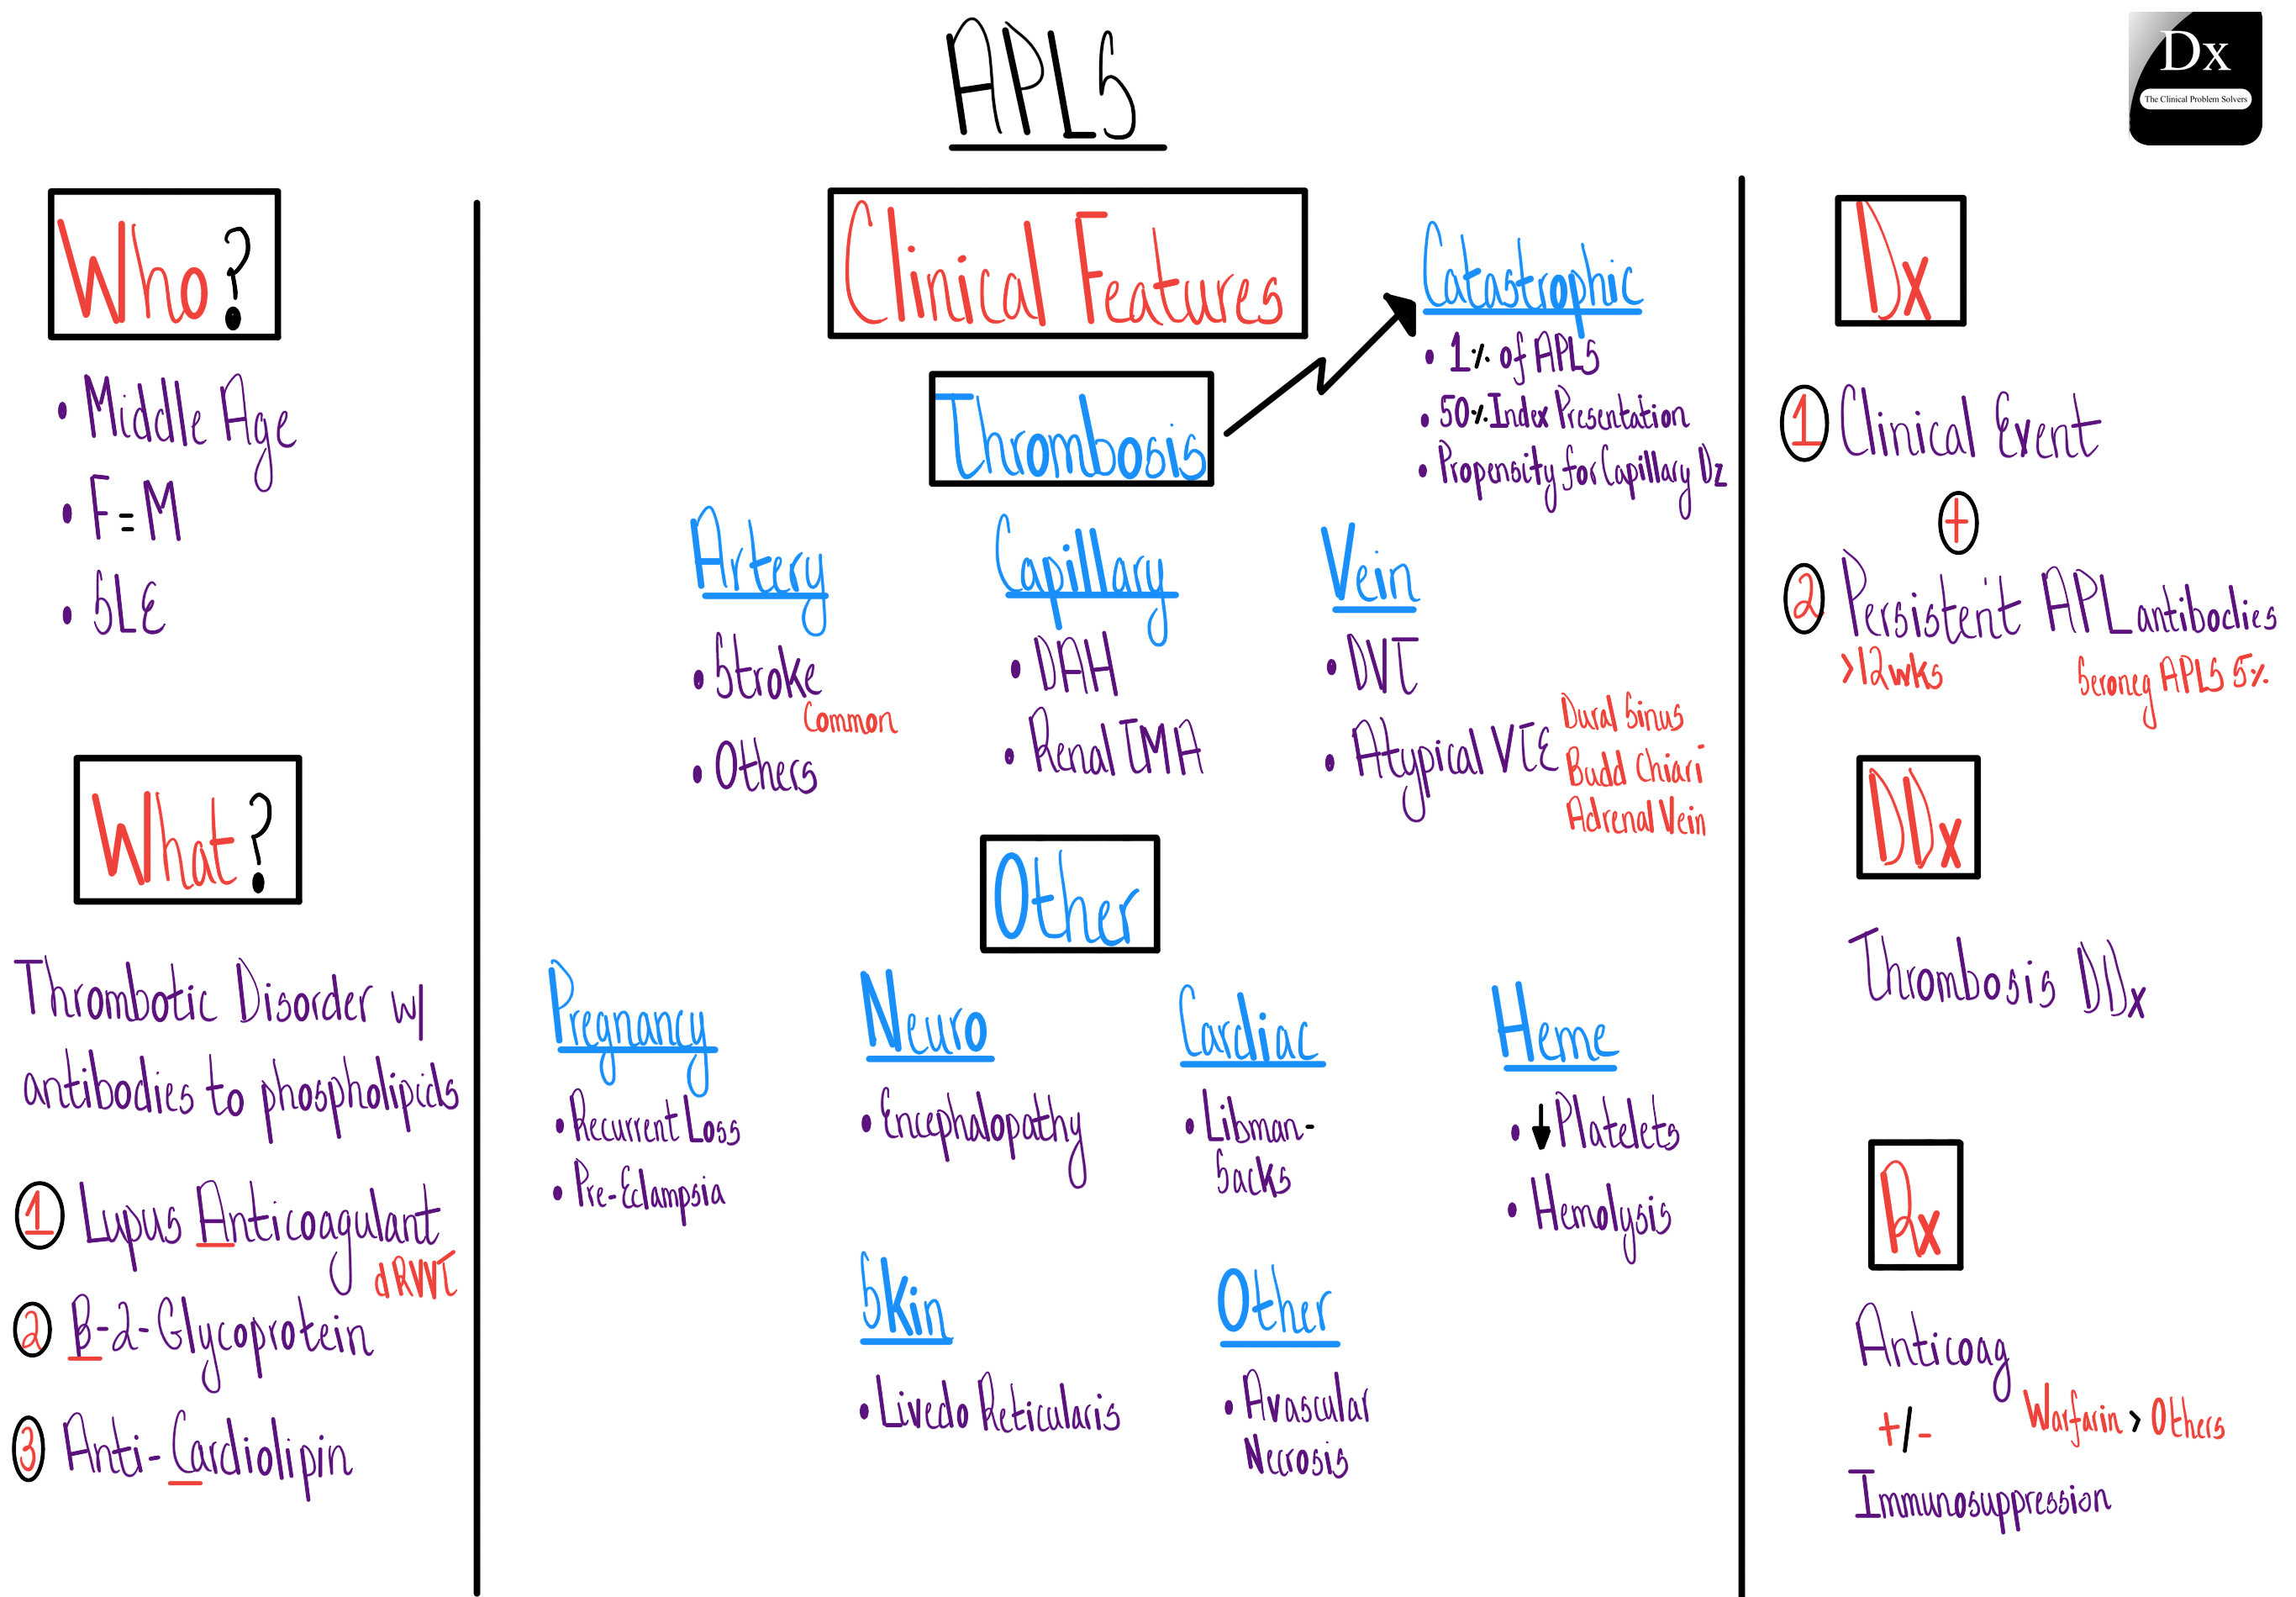 APLS
Dx
The Clinical Problem Solvers
Who?
• Middle Age
• F=M
• SLE
What?
Thrombotic Disorder w/
antibodies to phospholipids
1 Lupus Anticoagulant
dRVVT
2 B-2-Glycoprotein
3 Anti-Cardiolipin
Clinical Features
Thrombosis
Catastrophic
• 1% of APLS
• 50% Index Presentation
• Propensity for Capillary Dz
Artery
• Stroke
Common
• Others
Capillary
• DAH
• Renal TMA
Vein
• DVT
• Atypical VTE
Dural Sinus
Budd Chiari
Adrenal Vein
Other
Pregnancy
• Recurrent Loss
• Pre-Eclampsia
Neuro
• Encephalopathy
Cardiac
• Libman-
Sacks
Heme
• ↓ Platelets
• Hemolysis
Skin
• Livedo Reticularis
Other
• Avascular
Necrosis
Dx
1 Clinical Event
+
2 Persistent APL antibodies
>12 wks
Seroneg APLS 5%
DDx
Thrombosis DDx
Rx
Anticoag
Warfarin > Others
+/-
Immunosuppression